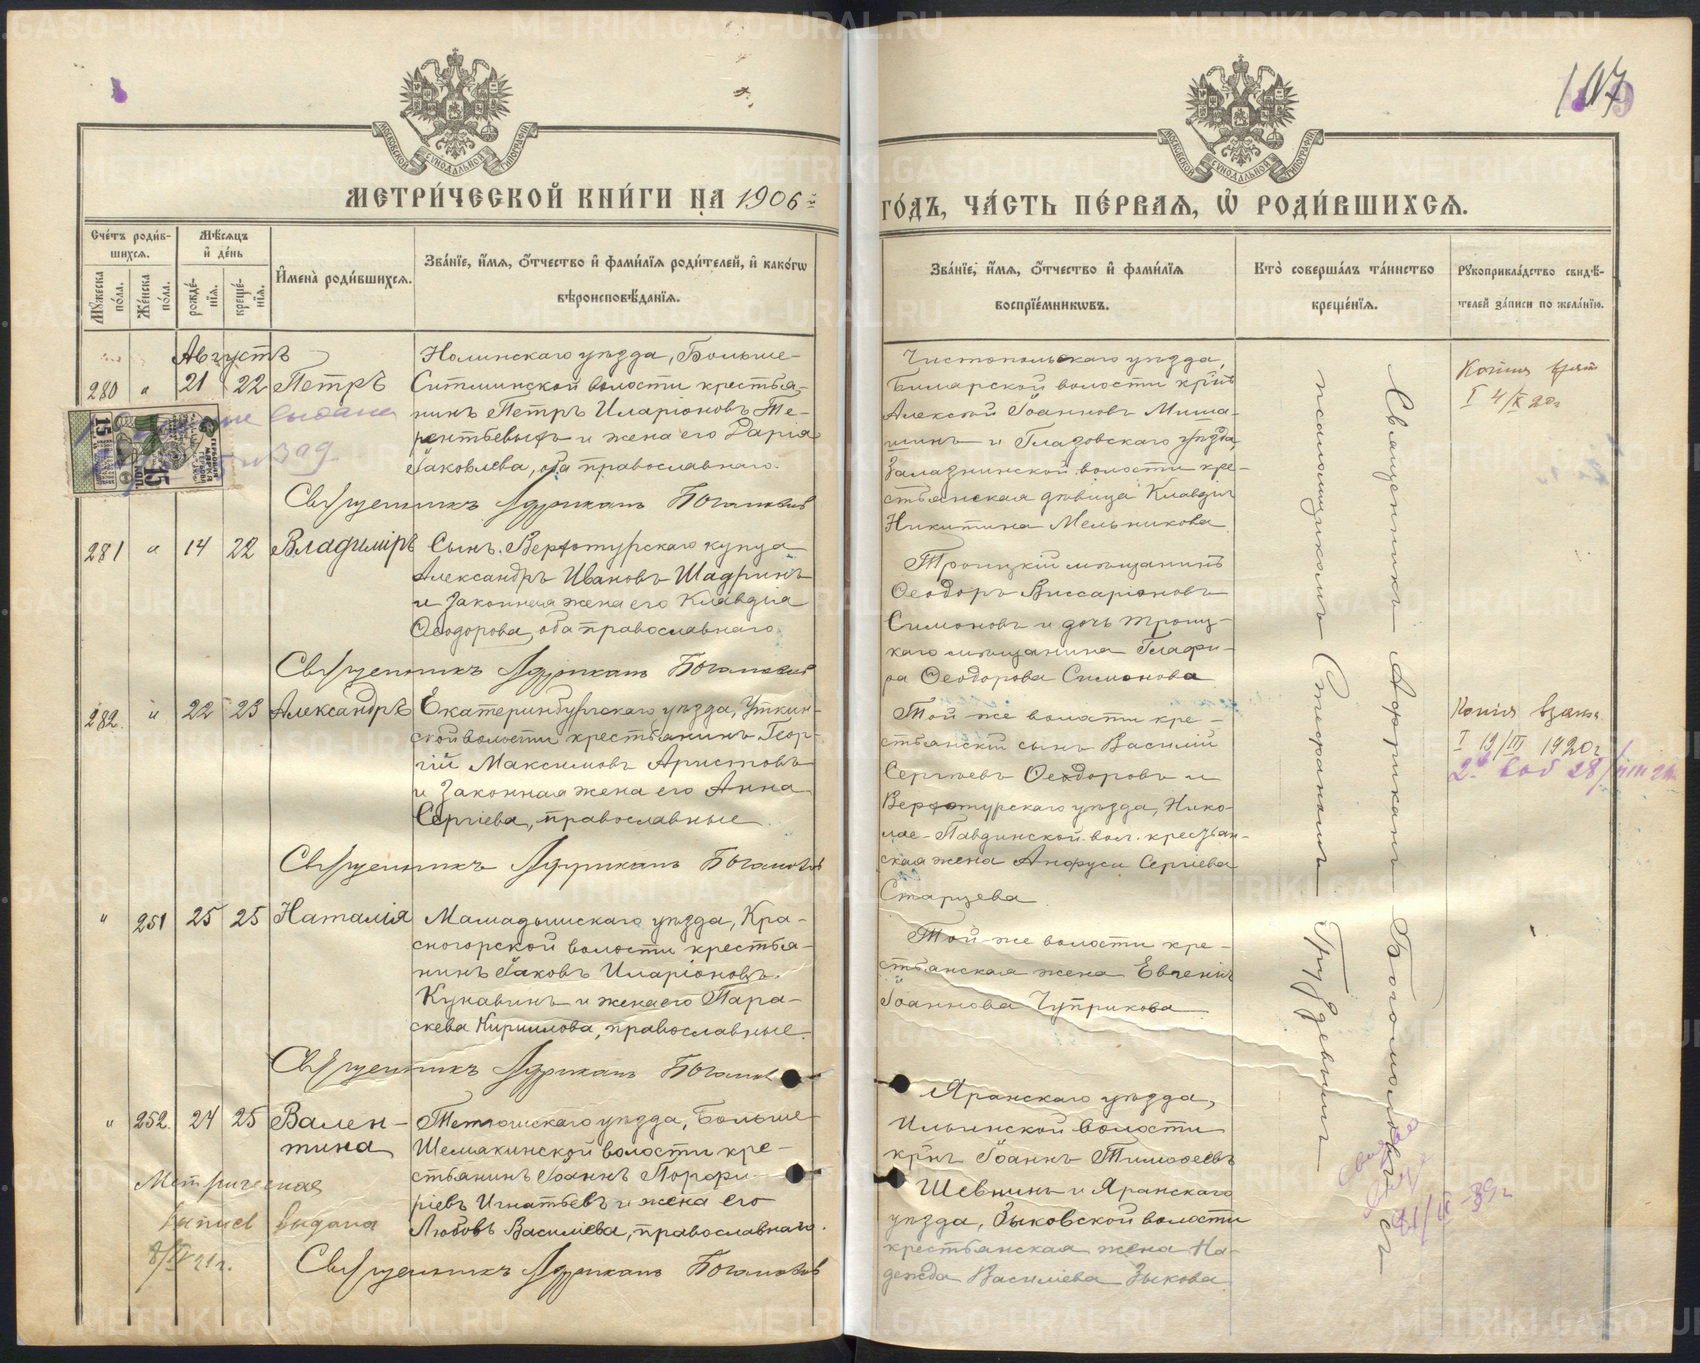 107
МЕТРИ́ЧЕСКОЙ КНИ́ГИ НА 1906й
ГО́ДЪ, ЧА́СТЬ ПЕ́РВАЯ, Ѡ РОДИ́ВШИХСЯ.
Сче́тъ роди́вшихся.
Мѣ́сяцъ и де́нь
Мꙋжеска по́ла.
Же́нска по́ла.
рожде́нїя.
креще́нїя.
И҆мена̀ роди́вшихся.
Зва́нїе, и҆́мя, о҆́тчество и҆ фами́лїя роди́телей, и҆ како́гѡ
вѣроисповѣ́данїя.
Зва́нїе, и҆́мя, о҆́тчество и҆ фами́лїя
воспрїе́мникѡвъ.
Кто̀ соверша́лъ та́инство
креще́нїя.
Рꙋкоприкла́дство свидѣ́-
телей за́писи по жела́нїю.
Августъ
280 " 21 22 Петръ
Нолинскаго уѣзда, Больше-
Ситминской волости крестья-
нинъ Петръ Иларіоновъ Те-
рентьевыхъ и жена его Дарія
Іаковлева, оба православнаго.
Священникъ Африканъ Богомоловъ
Чистопольскаго уѣзда,
Билярской волости кр-нъ
Алексѣй Іоанновъ Миша-
нинъ и Глазовскаго уѣзда,
Залазнинской волости кре-
стьянская дѣвица Клавдія
Никитина Мельникова
Копія взята
I 4/X 20г
15 КОП.
281 " 14 22 Владиміръ
Сынъ. Верхотурскаго купца
Александръ Ивановъ Шадринъ
и законная жена его Клавдіа
Ѳеодорова, оба православнаго
Священникъ Африканъ Богомоловъ
Троицкій мѣщанинъ
Ѳеодоръ Виссаріоновъ
Симоновъ и дочь троиц-
каго мѣщанина Глафи-
ра Ѳеодорова Симонова
282. " 22 23 Александръ
Екатеринбургскаго уѣзда, Уткин-
ской волости крестьянинъ Геор-
гій Максимовъ Аристовъ
и законная жена его Анна
Сергіева, православные
Священникъ Африканъ Богомоловъ
Той же волости кре-
стьянскій сынъ Василій
Сергѣевъ Ѳеодоровъ и
Верхотурскаго уѣзда, Нико-
лае-Павдинской вол. крестьян-
ская жена Анфуса Сергіева
Старцева
Копія взята
I 19/III 1920г
" 251 25 25 Наталія
Мамадышскаго уѣзда, Кра-
сногорской волости крестья-
нинъ Іаковъ Иларіоновъ
Кунавинъ и жена его Пара-
скева Кириллова, православные
Священникъ Африканъ Богомоловъ
Той-же волости кре-
стьянская жена Евгенія
Іоаннова Чуприкова
" 252. 24 25 Вален-
тина
Тетюшскаго уѣзда, Больше-
Шемякинской волости кре-
стьянинъ Іоаннъ Порфи-
ріевъ Игнатьевъ и жена его
Любовь Василіева, православнаго.
Священникъ Африканъ Богомоловъ
Метрическая
запись выдана
8/IX 21г.
Яранскаго уѣзда,
Ильинской волости
кр-нъ Іоаннъ Тимоѳеевъ
Шевнинъ и Яранскаго
уѣзда, Зыковской волости
крестьянская жена На-
дежда Василіева Зыкова
Священникъ Африканъ Богомоловъ съ
псаломщикомъ Стефаномъ Груздевымъ